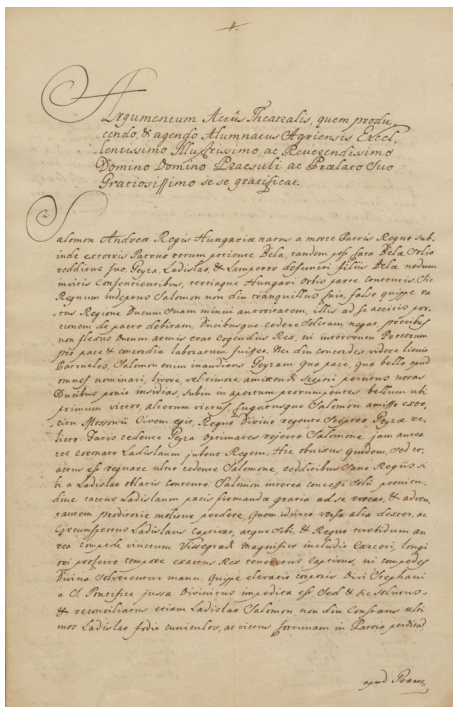 1.
Argumentum Actûs Theatralis, quem produ
cendo, & agendo Alumnatus Agriensis Excel
lentissimo Illustrissimo, ac Reverendissimo
Domino Domino Praesuli ac Praelato Suo
Gratiosissimo se se gratificat.
Salomon Andreae Regis Hungariae natus a morte Patris Regno sub
inde extorris Patruo rerum potiente Bela, tandem post fata Belae Solio
redditus suo, Geyza Ladislao, & Lamperto defuncti filiis Belae nondum
invitis consentientibus, tertiaque Hungari orbis parte contentis. Sic
Regnum indeptus Salomon non diu tranquillus fuit, false quippe ra
tus Regione Ducum Suam minui autoritatem, illis ad se accitis por
tionem de pacto debitam, Ducibusque cedere Solitam negat, precibus
non flexus Ducum armis erat cogendus Rex, ni interventu Procerum
pro pace & concordia laboratum fuisset. Nec diu concordes videre licuit
Patrueles, Salomon enim
omnes nominari, livore, vel timore amittendi
Ducibus ponit insidias, subin in apertum prorumpentes bellum ubi
primum victor, alterum victus, fugatusque Salomon amisso exer
citu Mossonii Civem egit, Regno Divino regente Geyzae re
licto. Fatis cedente Geyza optimates rejecto Salomone jam
coronare Ladislaum jubent Regem. Hic
actus est regnare ultro cedente Salomone, redditibus Sane Regiis si
bi a Ladislao oblatis contentus Salomon interea concepti Solii
dine tactus Ladislaum pacis firmandae gratia ad se vocat, & adven
tantem proditorie molitur perdere, Quem idcirco versa alia dexter, ac
Circumspectus Ladislaus captivat, aeque Sibi, & Regno turbidum au
reo compede vinctum Vissegrad magnifico includit Carceri, longi
ori profecto tempore exactus Rex Captivus, ni compedes
Divina Solverentur manu, Quippe elevatio corporis Divi Stephani
a S. Pontifice jussa Divinitus impedita est Sed & sic Solutus
& reconciliatus etiam Ladislao Salomon non diu Constans
mos Ladislao fodit cuniculos, ac victus fortunam in Patria perdend
apud